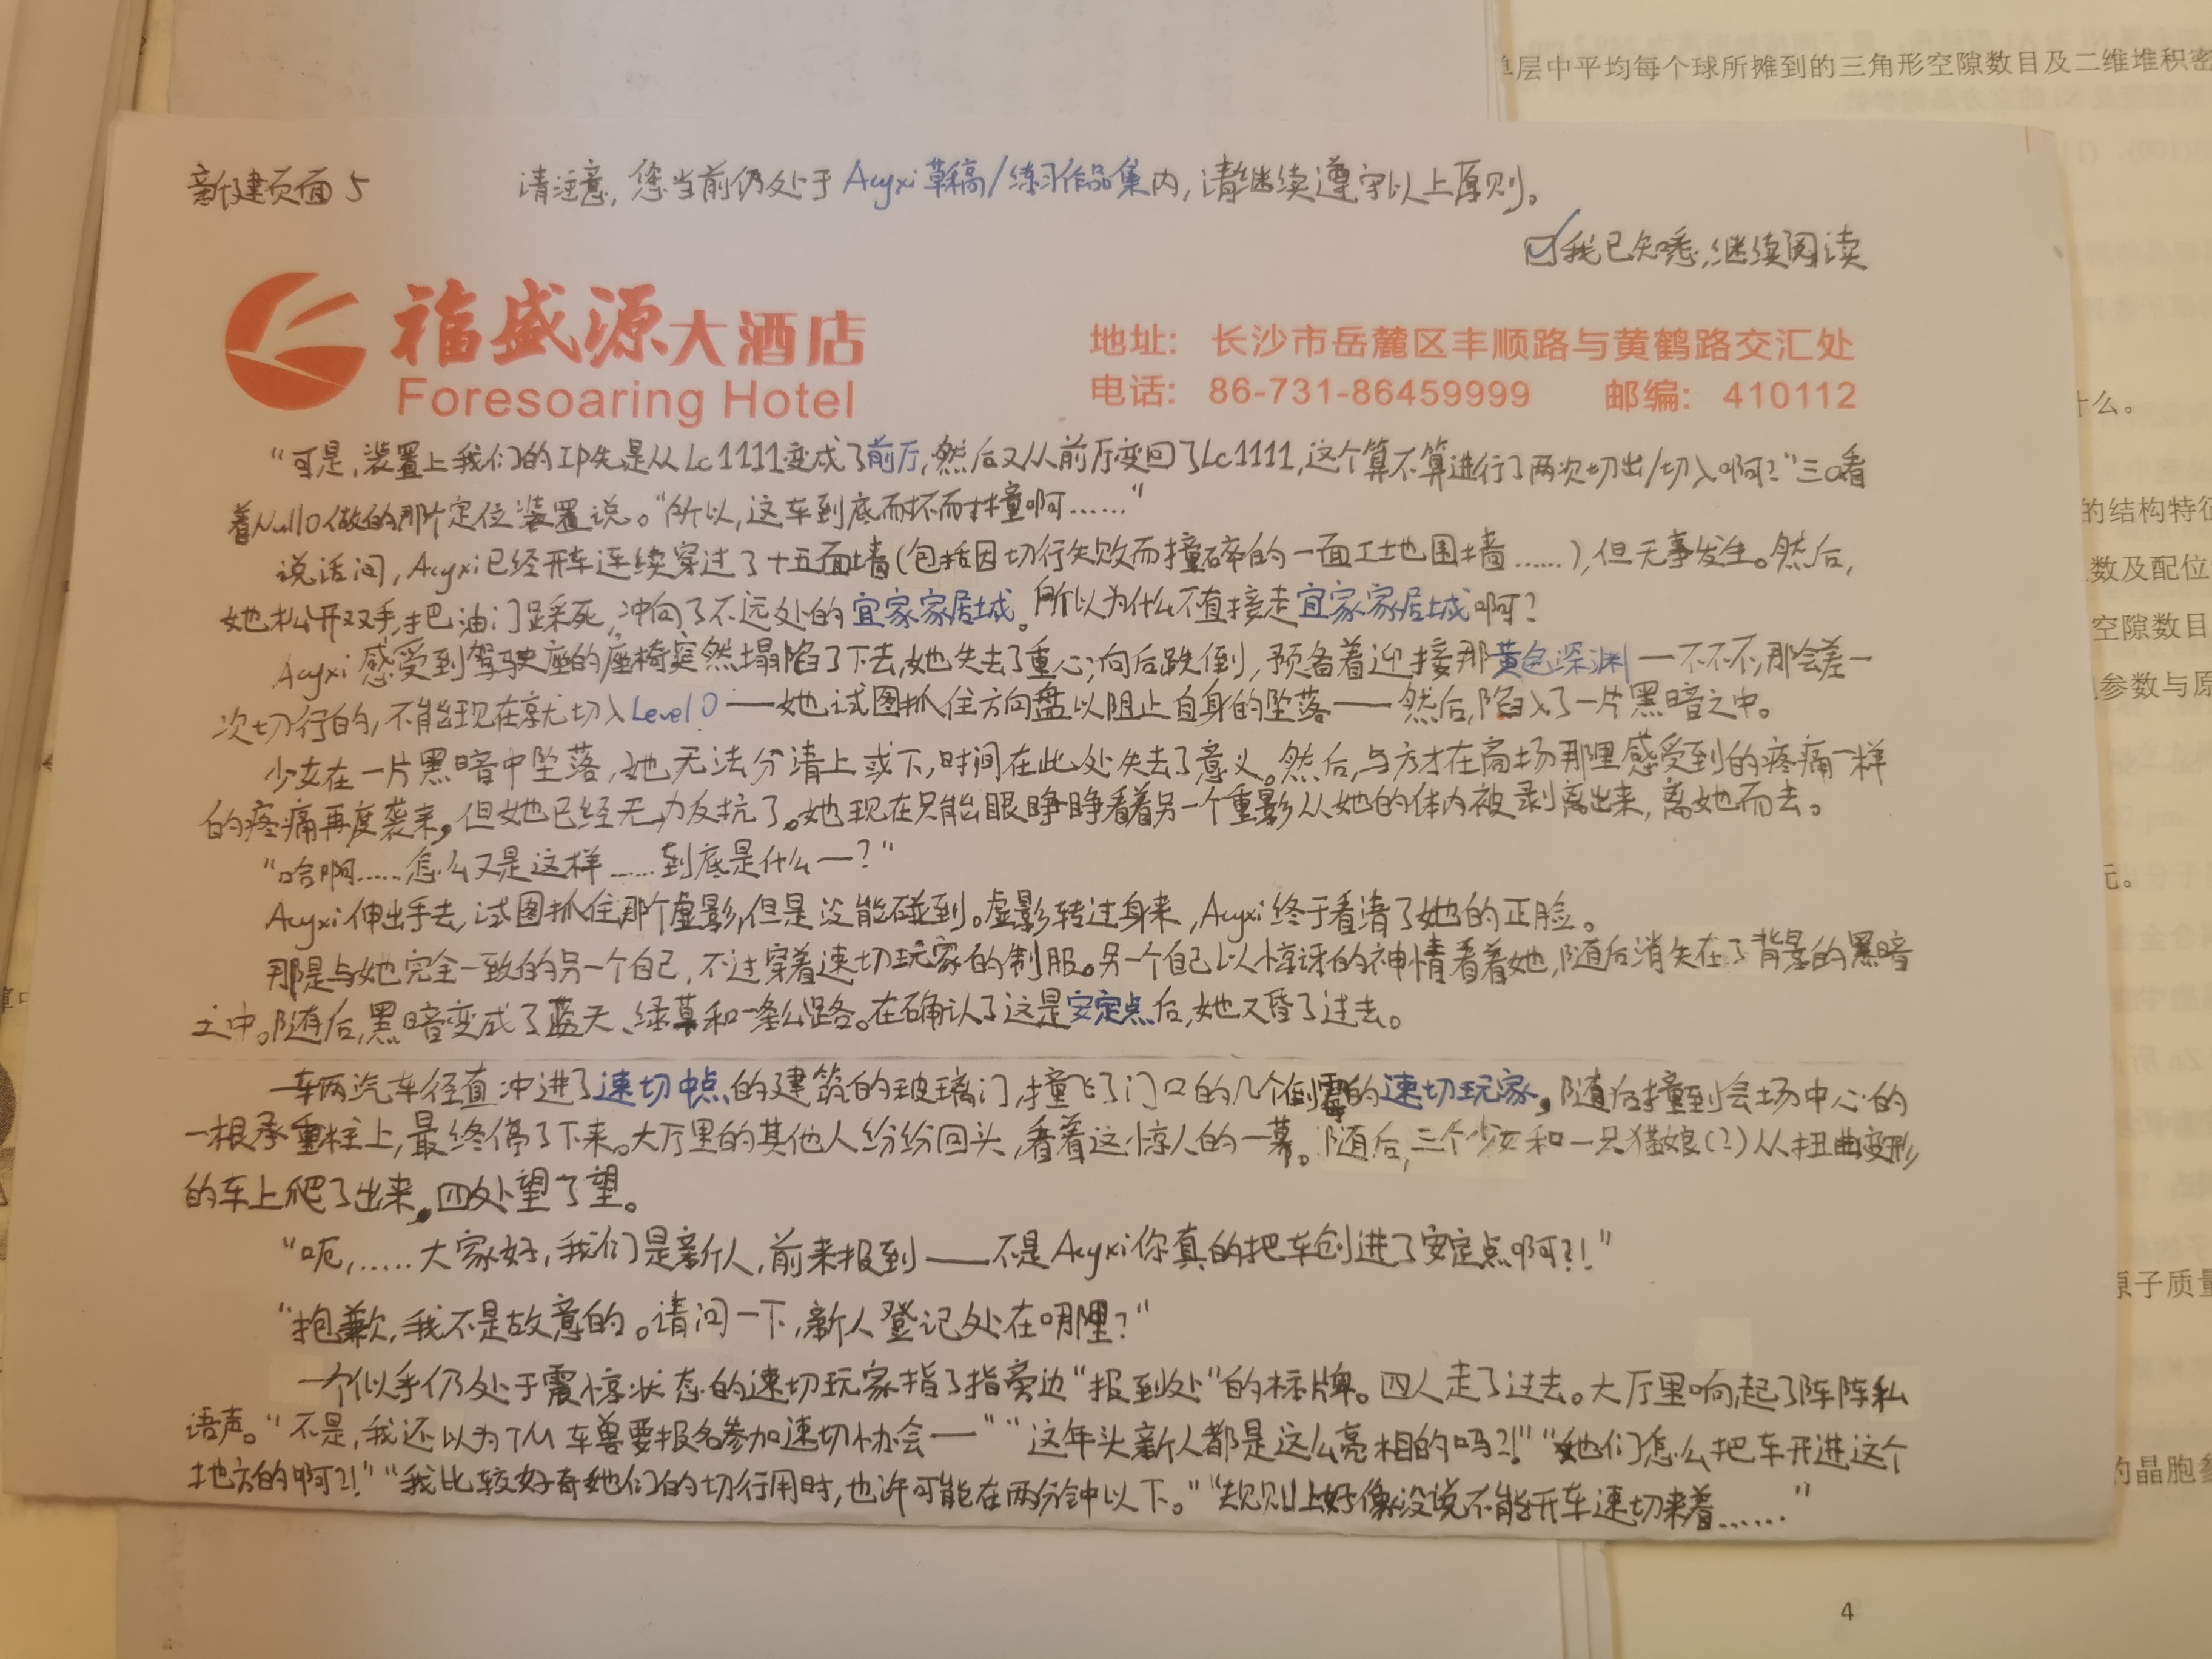 单层中平均每个球所摊到的三角形空隙数目及二维堆积密
新建页面5
请注意,您当前仍处于Acyxi草稿/练习作品集内,请继续遵守以上原则。
☑我已知悉,继续阅读
福盛源大酒店
Foresoaring Hotel
地址: 长沙市岳麓区丰顺路与黄鹤路交汇处
电话: 86-731-86459999 邮编: 410112
“可是,装置上我们的IP先是从Lc1111变成了前厅,然后又从前厅变回了Lc1111,这个算不算进行了两次切出/切入啊?”三α看
着Null0做的那个定位装置说。“所以,这车到底而坏而撞啊……”
说话间,Acyxi已经开车连续穿过了十五面墙(包括因切行失败而撞碎的一面工地围墙……),但无事发生。然后,
她松开双手,把油门踩死,冲向了不远处的宜家家居城。所以为什么不直接走宜家家居城啊?
Acyxi感受到驾驶座的座椅突然塌陷了下去,她失去了重心,向后跌倒,预备着迎接那黄色深渊——不不不,那会差一
次切行的,不能现在就切入Level 0——她试图抓住方向盘以阻止自身的坠落——然后,陷入了一片黑暗之中。
少女在一片黑暗中坠落,她无法分清上或下,时间在此处失去了意义。然后,与方才在商场那里感受到的疼痛一样
的疼痛再度袭来,但她已经无力反抗了。她现在只能眼睁睁看着另一个重影从她的体内被剥离出来,离她而去。
“哈啊……怎么又是这样……到底是什么—?”
Acyxi伸出手去,试图抓住那个虚影,但是没能碰到。虚影转过身来,Acyxi终于看清了她的正脸。
那是与她完全一致的另一个自己,不过穿着速切玩家的制服。另一个自己以惊讶的神情看着她,随后消失在了背景的黑暗
之中。随后,黑暗变成了蓝天、绿草和一条公路。在确认了这是安定点后,她又昏了过去。
一车两汽车径直冲进了速切中点的建筑的玻璃门,撞飞了门口的几个倒霉的速切玩家,随后撞到会场中心的
一根承重柱上,最终停了下来。大厅里的其他人纷纷回头,看着这惊人的一幕。随后,三个少女和一只猫娘(?)从扭曲变形
的车上爬了出来,四处望了望。
“呃,……大家好,我们是新人,前来报到——不是Acyxi你真的把车创进了安定点啊?!”
“抱歉,我不是故意的。请问一下,新人登记处在哪里?”
一个似乎仍处于震惊状态的速切玩家指了指旁边“报到处”的标牌。四人走了过去。大厅里响起了阵阵私
语声。“不是,我还以为TM车兽要报名参加速切协会—”“这年头新人都是这么亮相的吗?!”“她们怎么把车开进这个
地方的啊?!”“我比较好奇她们的切行用时,也许可能在两分钟以下。”“规则上好像没说不能开车速切来着……”
什么。
的结构特征
数及配位
空隙数目
参数与原
元。
Zn 所
原子质量
的晶胞参
4